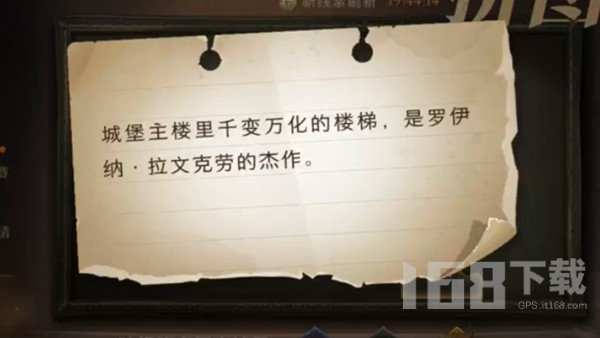 19:44:14
城堡主楼里千变万化的楼梯，是罗伊
纳·拉文克劳的杰作。
168下载
GPS.it168.com